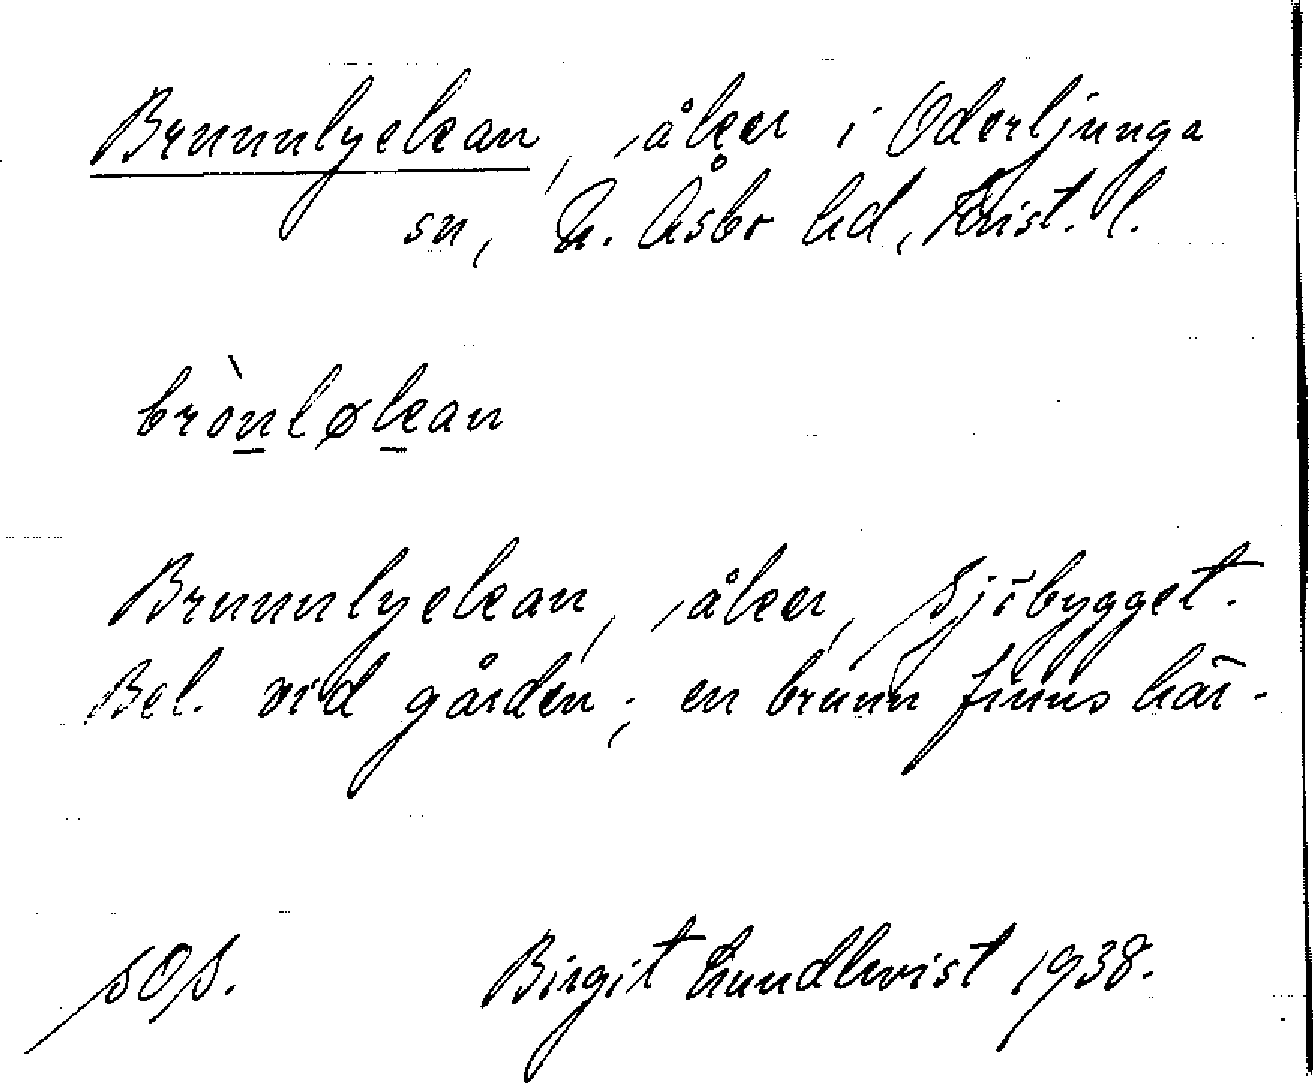 Brunnlyckan, åker i Oderljunga
sn, N. Åsbo hd, Krist. l.
brònløkan
Brunnlyckan, åker, Sjöbygget.
Bel. vid gården; en brunn finns här.
SOS. Birgit Lundkvist 1938.